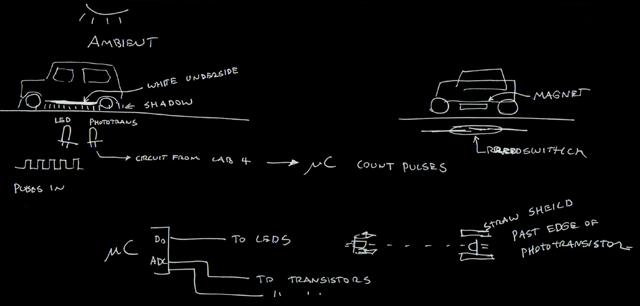 AMBIENT
WHITE UNDERSIDE
SHADOW
MAGNET
LED PHOTOTRANS
CIRCUIT FROM LAB 4 → μC COUNT PULSES
PULSES IN
STRAW SHEILD
PAST EDGE OF
PHOTOTRANSISTOR
μC
D0 TO LEDS
ADC
TO TRANSISTORS
" "